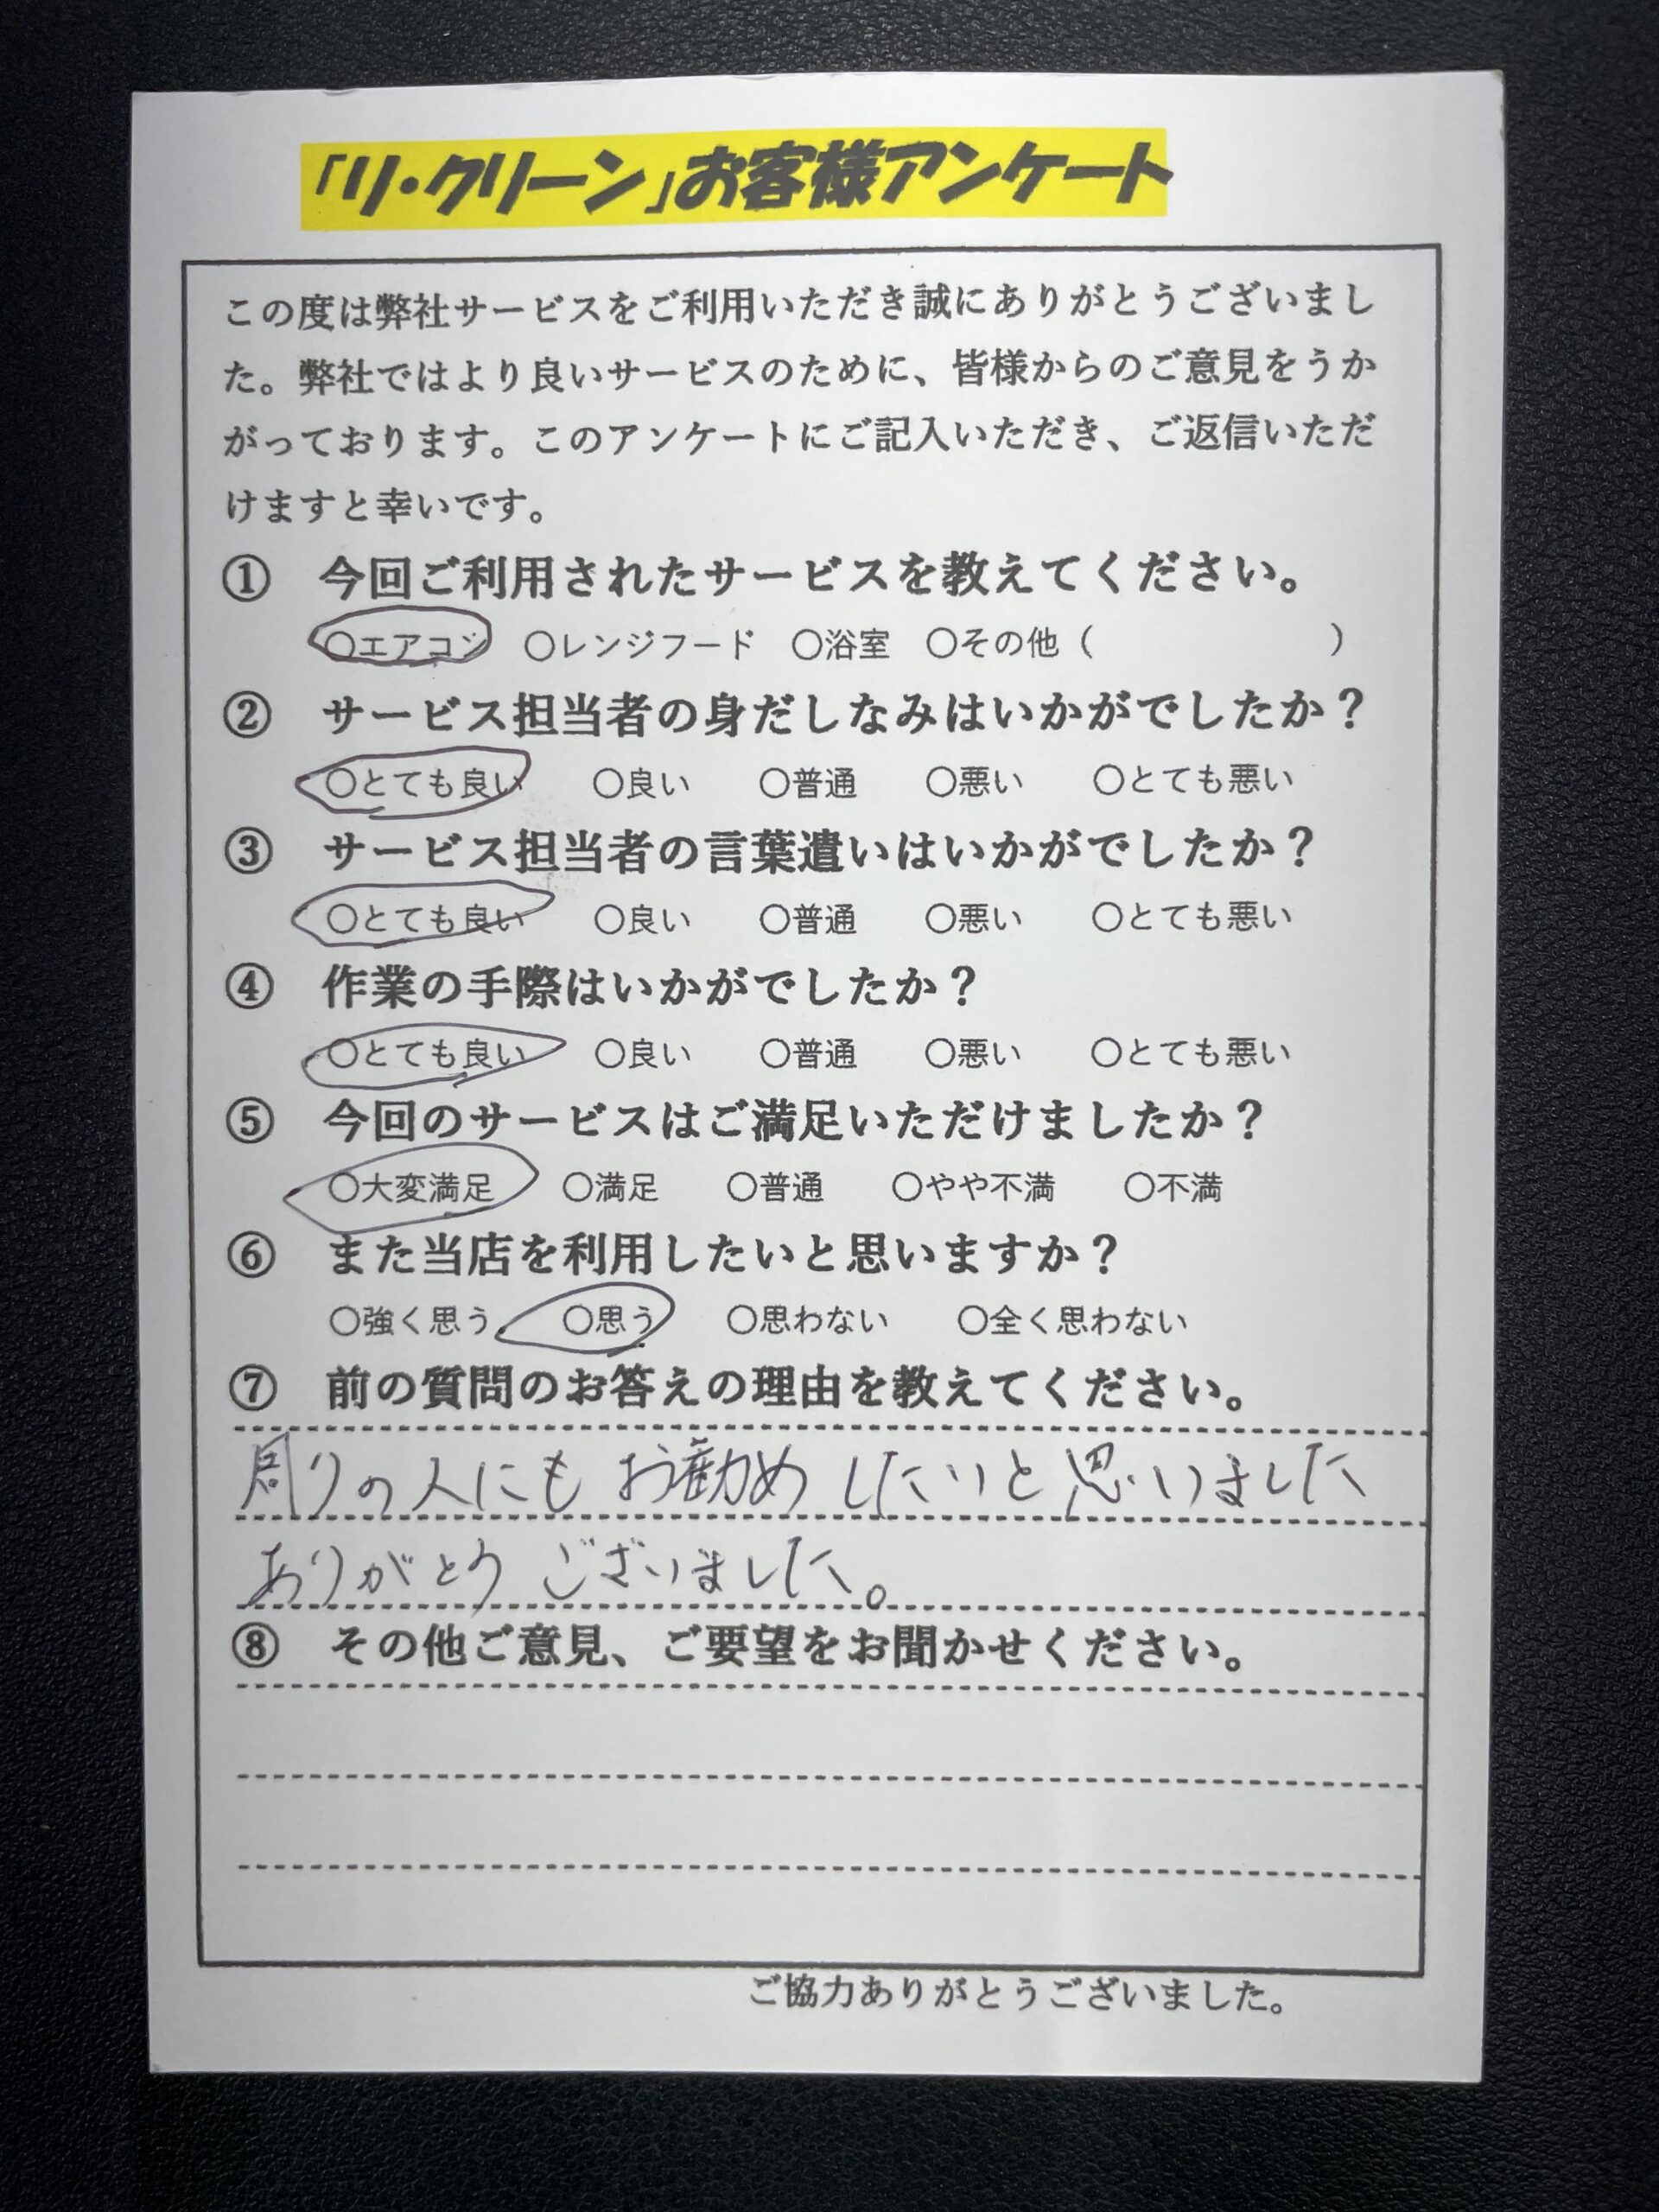 「リ・クリーン」お客様アンケート
この度は弊社サービスをご利用いただき誠にありがとうございまし
た。弊社ではより良いサービスのために、皆様からのご意見をうか
がっております。このアンケートにご記入いただき、ご返信いただ
けますと幸いです。
① 今回ご利用されたサービスを教えてください。
○エアコン ○レンジフード ○浴室 ○その他（ ）
② サービス担当者の身だしなみはいかがでしたか？
○とても良い ○良い ○普通 ○悪い ○とても悪い
③ サービス担当者の言葉遣いはいかがでしたか？
○とても良い ○良い ○普通 ○悪い ○とても悪い
④ 作業の手際はいかがでしたか？
○とても良い ○良い ○普通 ○悪い ○とても悪い
⑤ 今回のサービスはご満足いただけましたか？
○大変満足 ○満足 ○普通 ○やや不満 ○不満
⑥ また当店を利用したいと思いますか？
○強く思う ○思う ○思わない ○全く思わない
⑦ 前の質問のお答えの理由を教えてください。
周りの人にも お勧め したいと 思いました
ありがとう ございました。
⑧ その他ご意見、ご要望をお聞かせください。
ご協力ありがとうございました。